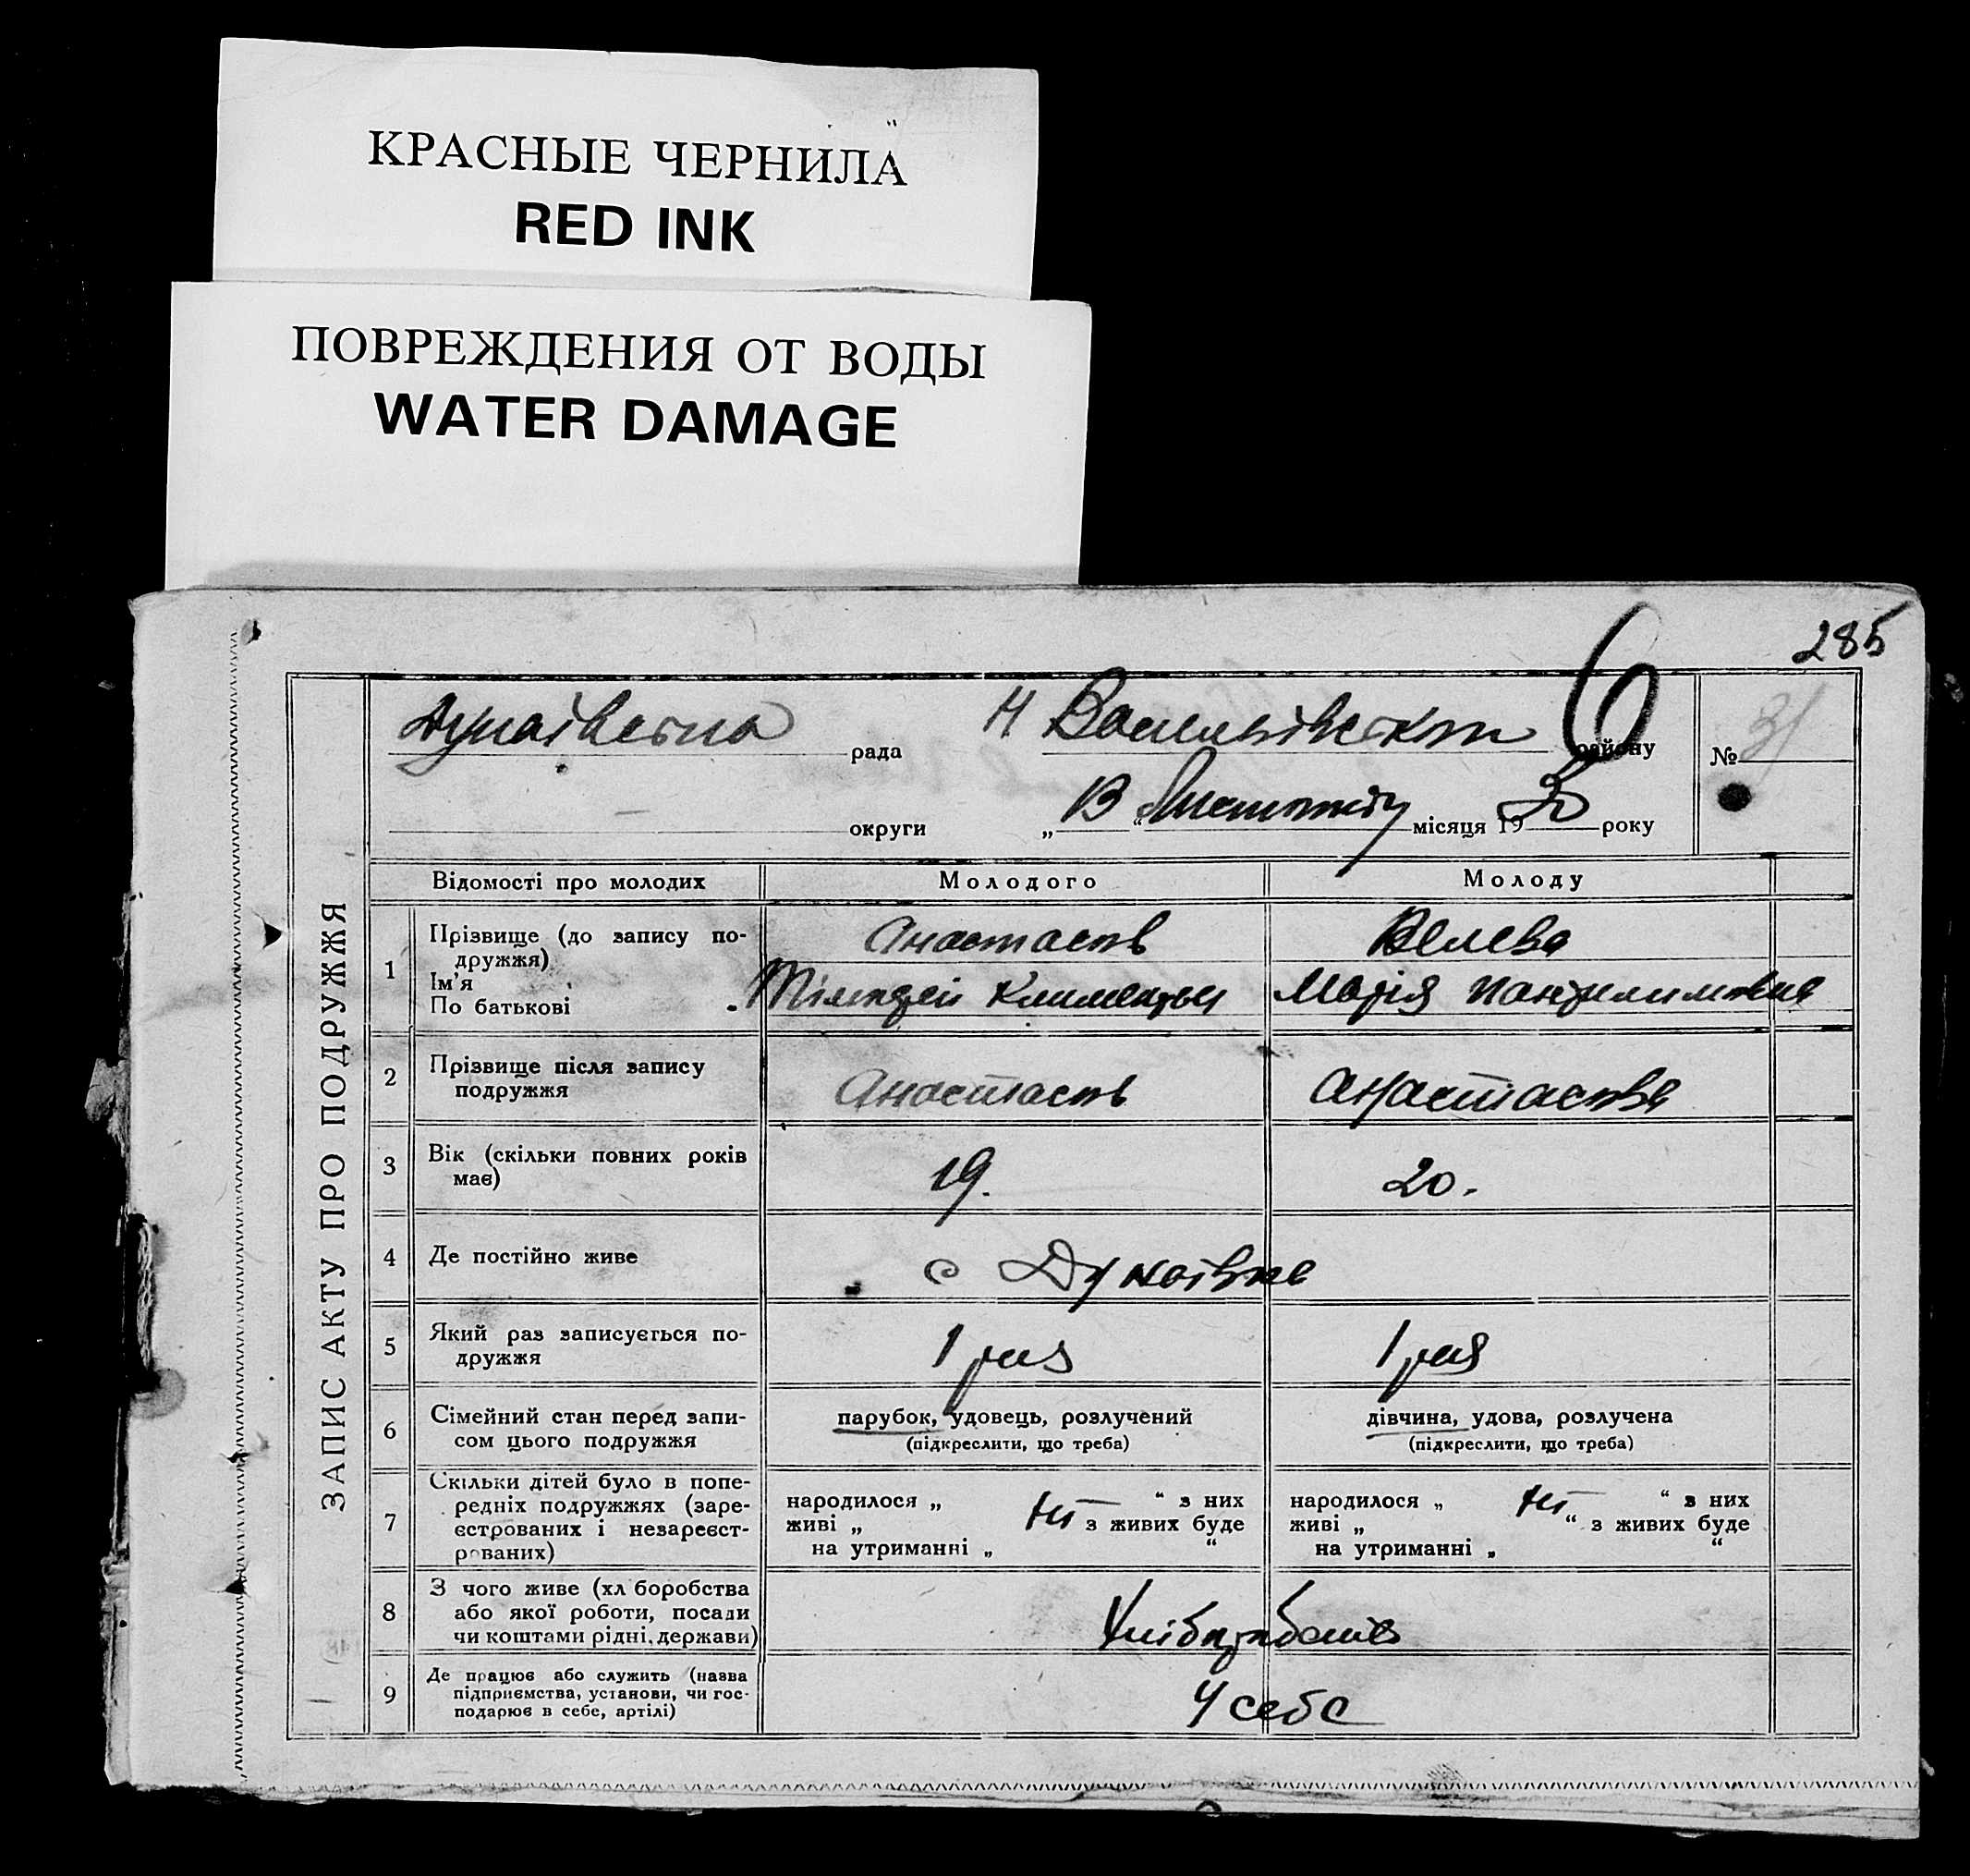 КРАСНЫЕ ЧЕРНИЛА
RED INK
ПОВРЕЖДЕНИЯ ОТ ВОДЫ
WATER DAMAGE
285
6
рада Н району № 31
округи „ “ місяця 1930 року
ЗАПИС АКТУ ПРО ПОДРУЖЖЯ
Відомості про молодих Молодого Молоду
1 Прізвище (до запису по-
дружжя)
Анастасов Велева
Ім'я
По батькові
Марія
2 Прізвище після запису
подружжя
Анастасов Анастасова
3 Вік (скільки повних років
має)
19. 20.
4 Де постійно живе
с Дунаівка
5 Який раз записується по-
дружжя
1 раз 1 раз
6 Сімейний стан перед запи-
сом цього подружжя
парубок, удовець, розлучений дівчина, удова, розлучена
(підкреслити, що треба) (підкреслити, що треба)
7 Скільки дітей було в попе-
редніх подружжях (заре-
єстрованих і незареєст-
рованих)
народилося „ ні “ з них народилося „ ні “ з них
живі „ з живих буде живі „ “ з живих буде
на утриманні „ “ на утриманні „ “
8 З чого живе (хл боробства
або якої роботи, посади
чи коштами рідні, держави)
9 Де працює або служить (назва
підприємства, установи, чи гос-
подарює в себе, артілі)
У себе